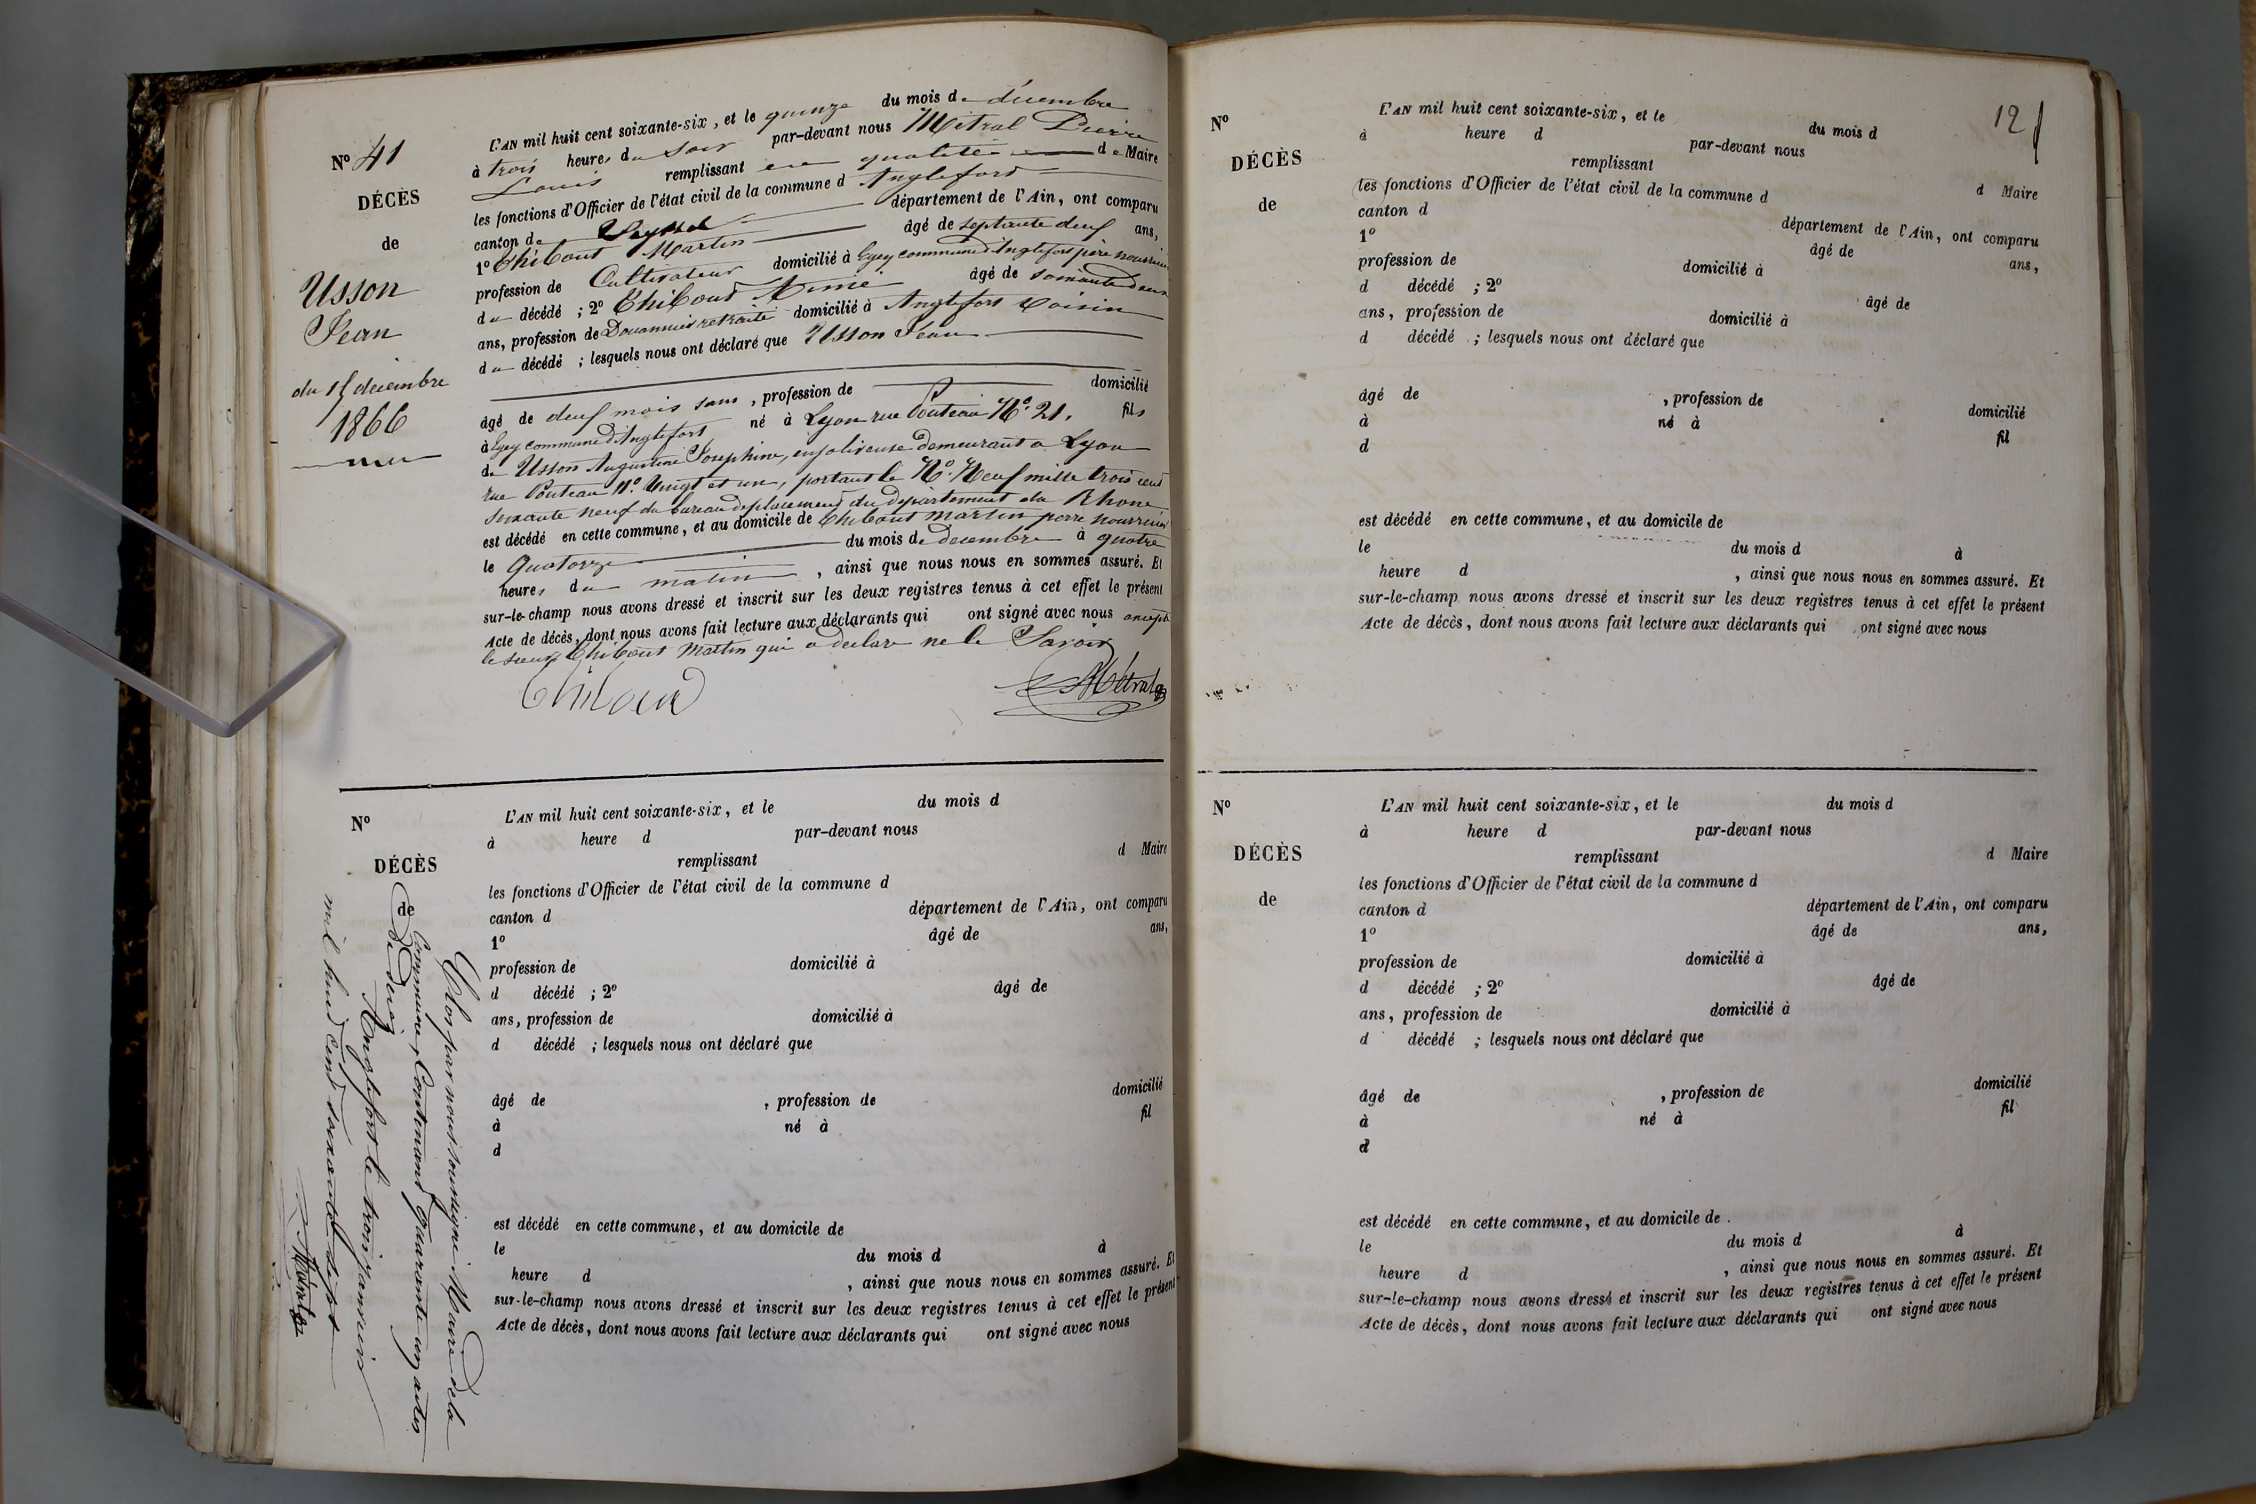 Nº 41
DÉCÈS
de
Usson
Jean
du 15 décembre
1866
L'AN mil huit cent soixante-six, et le quinze du mois de décembre
à trois heures du soir par-devant nous Métral Pierre
Louis remplissant en qualité de Maire
les fonctions d'Officier de l'état civil de la commune d Anglefort
canton de Seyssel département de l'Ain, ont comparu
1º Thiboud Martin âgé de septante deuf ans,
profession de Cultivateur domicilié à Egey commune d'Anglefort père nourricier
du décédé ; 2º Thiboud Aimé âgé de soixante deux
ans, profession de Douannier retraité domicilié à Anglefort voisin
du décédé ; lesquels nous ont déclaré que Usson Jean
âgé de deuf mois sans, profession de domicilié
à Egey commune d'Anglefort né à Lyon rue Pouteau Nº. 21. fils
de Usson Augustine Josephine, enjoliveuse demeurant a Lyon
rue Pouteau nº. vingt et un, portant le Nº. Neuf mille trois cent
soixante neuf du bureau de placement du département du Rhone
est décédé en cette commune, et au domicile de Thiboud Martin perre nourricier
le quatorze du mois de decembre à quatre
heures du matin, ainsi que nous nous en sommes assuré. Et
sur-le-champ nous avons dressé et inscrit sur les deux registres tenus à cet effet le présent
Acte de décès, dont nous avons fait lecture aux déclarants qui ont signé avec nous excepté
le sieur Thiboud Martin qui a declare ne le Savoir
Thiboud Métral
Nº
DÉCÈS
de
L'AN mil huit cent soixante-six, et le du mois d
à heure d par-devant nous
remplissant d Maire
les fonctions d'Officier de l'état civil de la commune d
canton d département de l'Ain, ont comparu
1º âgé de ans,
profession de domicilié à
d décédé ; 2º âgé de
ans, profession de domicilié à
d décédé ; lesquels nous ont déclaré que
âgé de , profession de domicilié
à né à fil
d
est décédé en cette commune, et au domicile de
le du mois d à
heure d , ainsi que nous nous en sommes assuré. Et
sur-le-champ nous avons dressé et inscrit sur les deux registres tenus à cet effet le présent
Acte de décès, dont nous avons fait lecture aux déclarants qui ont signé avec nous
Clos par nous soussigné Maire de la
Commune, Contenant Quarante un actes
de Décès
Anglefort le trois janvier
mil huit cent soixante sept
Métral
12
Nº
DÉCÈS
de
L'AN mil huit cent soixante-six, et le du mois d
à heure d par-devant nous
remplissant d Maire
les fonctions d'Officier de l'état civil de la commune d
canton d département de l'Ain, ont comparu
1º âgé de ans,
profession de domicilié à
d décédé ; 2º âgé de
ans, profession de domicilié à
d décédé ; lesquels nous ont déclaré que
âgé de , profession de domicilié
à né à fil
d
est décédé en cette commune, et au domicile de
le du mois d à
heure d , ainsi que nous nous en sommes assuré. Et
sur-le-champ nous avons dressé et inscrit sur les deux registres tenus à cet effet le présent
Acte de décès, dont nous avons fait lecture aux déclarants qui ont signé avec nous
Nº
DÉCÈS
de
L'AN mil huit cent soixante-six, et le du mois d
à heure d par-devant nous
remplissant d Maire
les fonctions d'Officier de l'état civil de la commune d
canton d département de l'Ain, ont comparu
1º âgé de ans,
profession de domicilié à
d décédé ; 2º âgé de
ans, profession de domicilié à
d décédé ; lesquels nous ont déclaré que
âgé de , profession de domicilié
à né à fil
d
est décédé en cette commune, et au domicile de
le du mois d à
heure d , ainsi que nous nous en sommes assuré. Et
sur-le-champ nous avons dressé et inscrit sur les deux registres tenus à cet effet le présent
Acte de décès, dont nous avons fait lecture aux déclarants qui ont signé avec nous